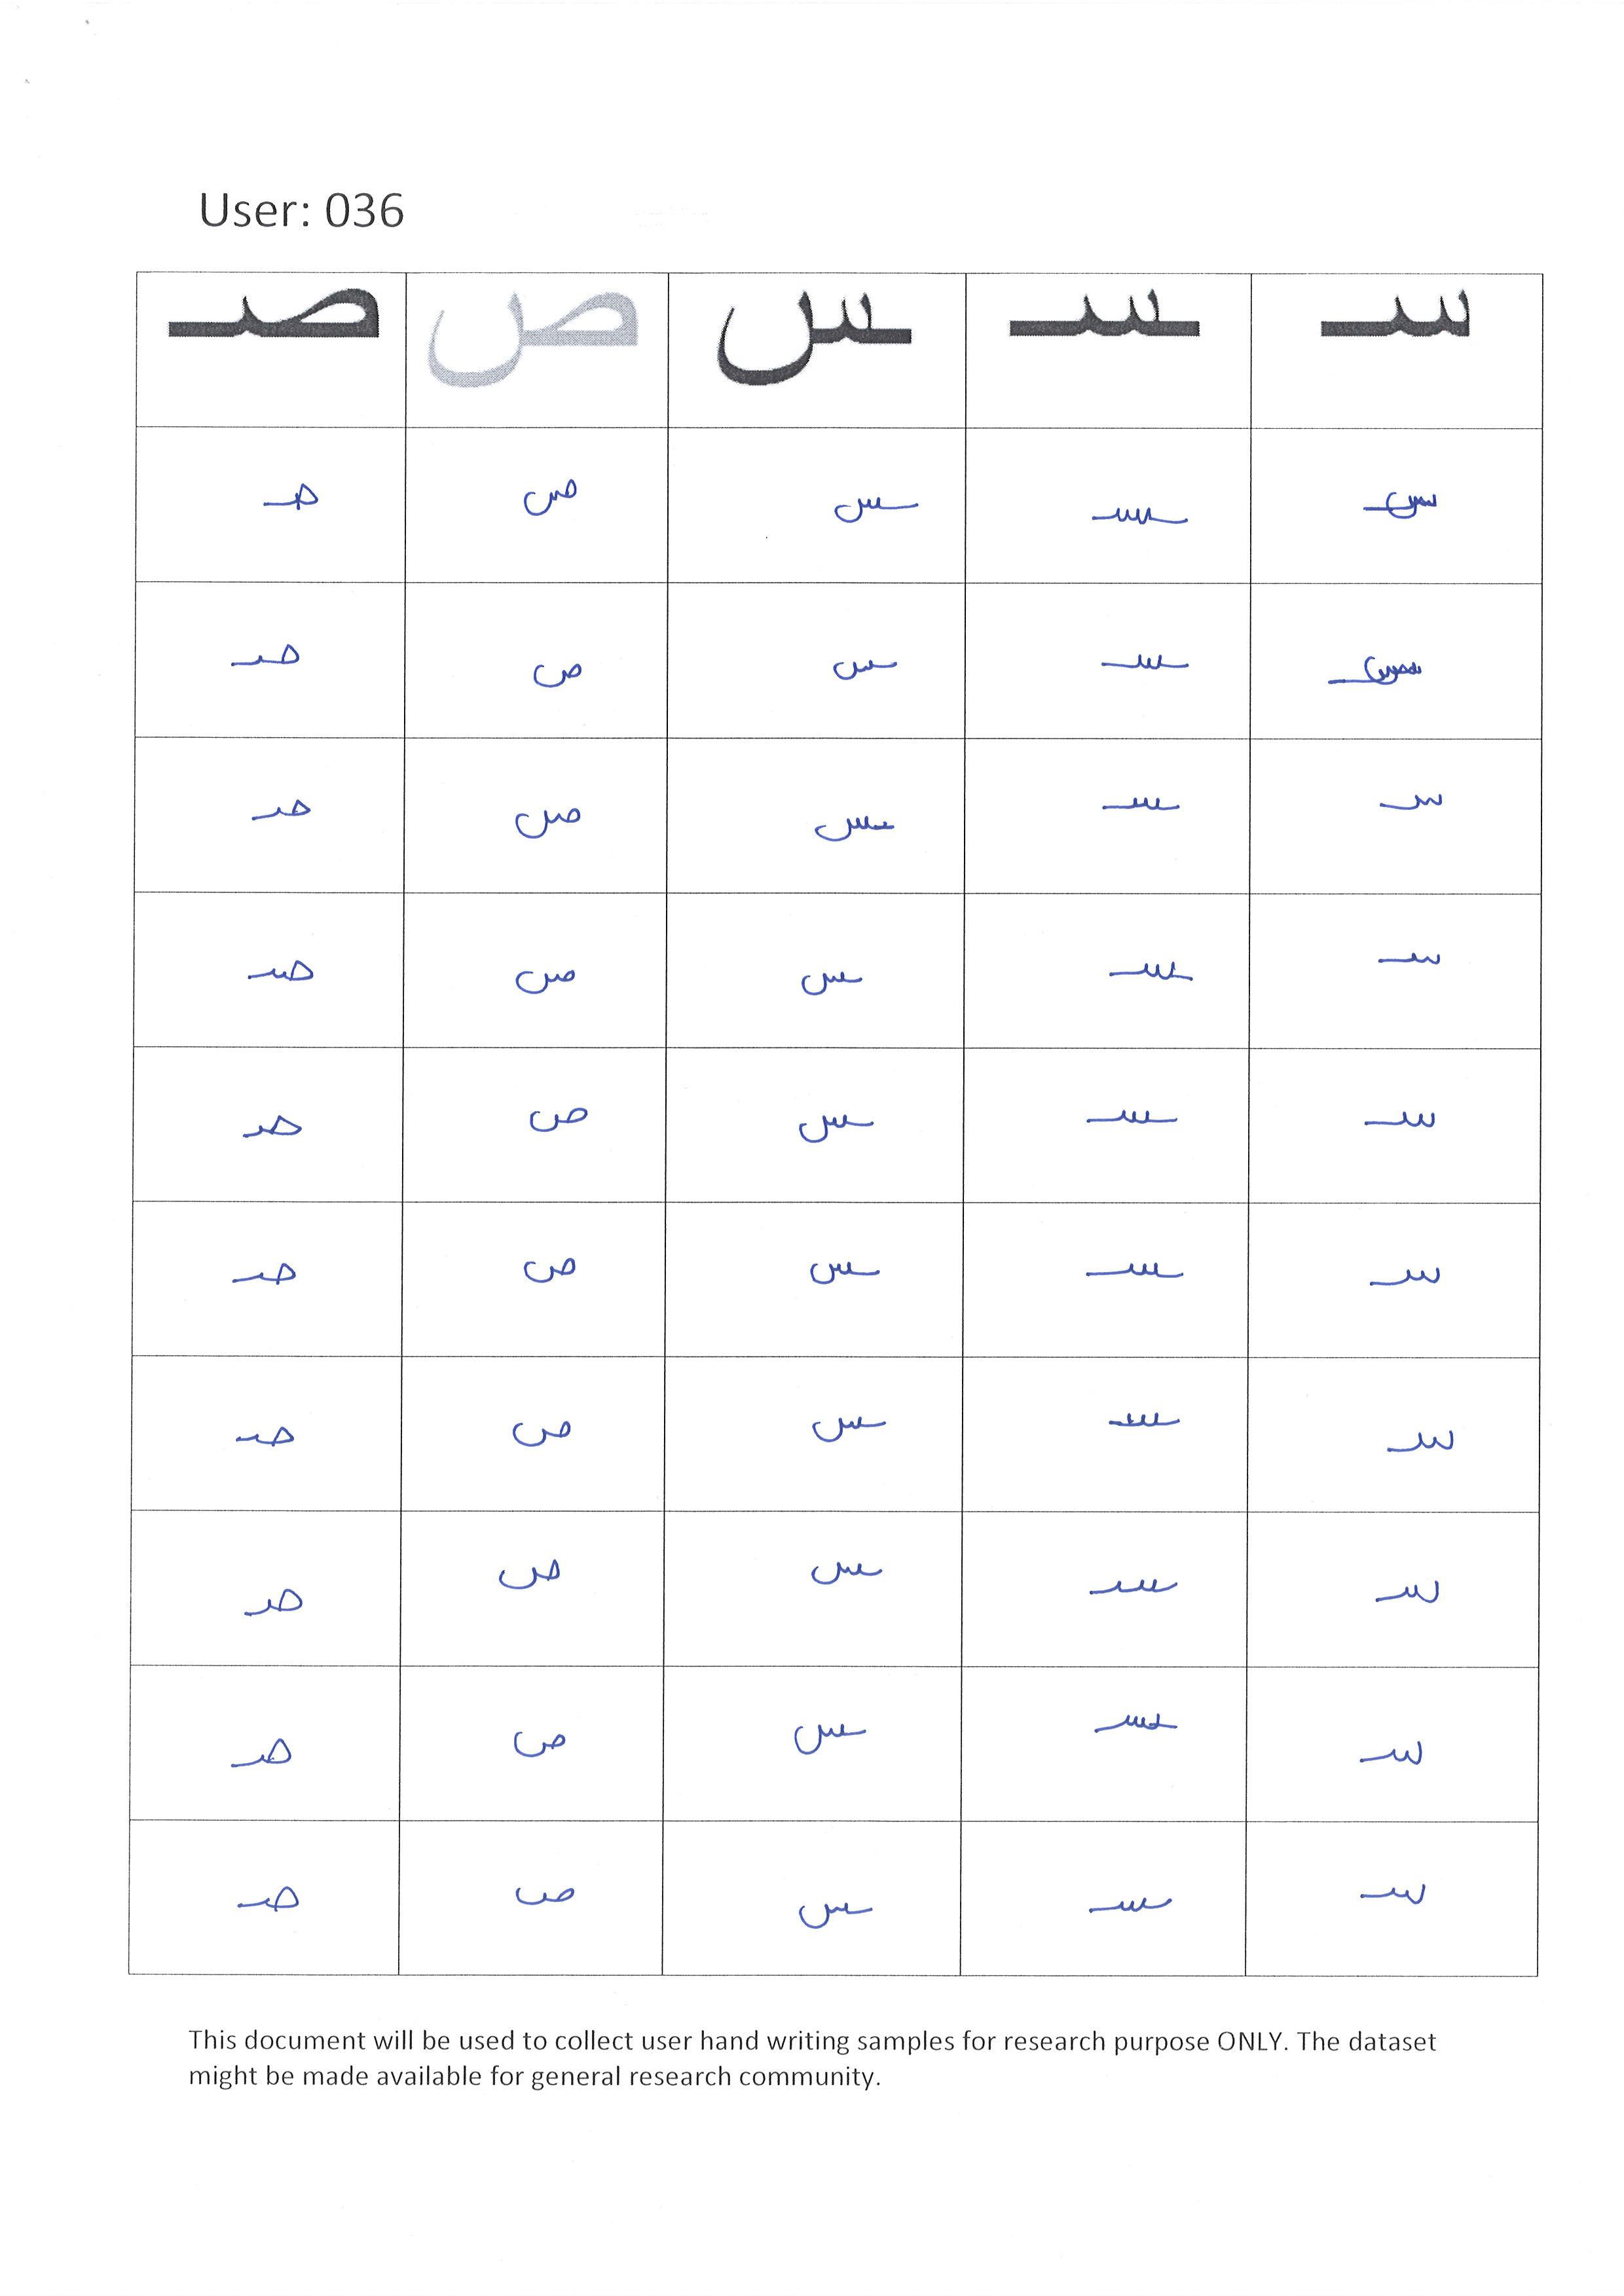 User: 036
سـ ـسـ ـس ص صـ
سـ ـسـ ـس ص صـ
سـ ـسـ ـس ص صـ
سـ ـسـ ـس ص صـ
سـ ـسـ ـس ص صـ
سـ ـسـ ـس ص صـ
سـ ـسـ ـس ص صـ
سـ ـسـ ـس ص صـ
سـ ـسـ ـس ص صـ
سـ ـسـ ـس ص صـ
سـ ـسـ ـس ص صـ
This document will be used to collect user hand writing samples for research purpose ONLY. The dataset
might be made available for general research community.